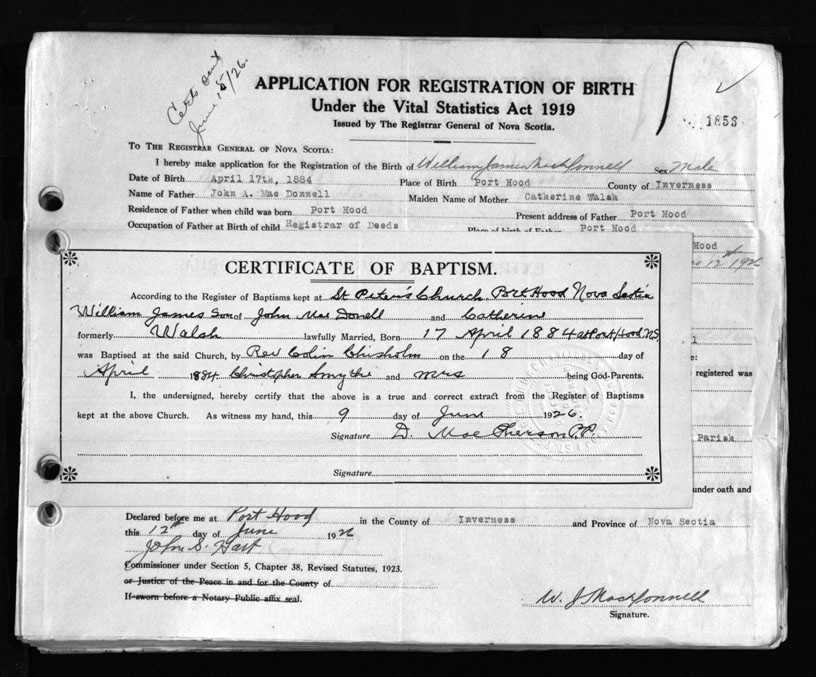 Certs sent
June 15/26.
APPLICATION FOR REGISTRATION OF BIRTH
Under the Vital Statistics Act 1919
Issued by The Registrar General of Nova Scotia.
1853
TO THE REGISTRAR GENERAL OF NOVA SCOTIA:
I hereby make application for the Registration of the Birth of William James MacDonnell Sex Male
Date of Birth April 17th, 1884 Place of Birth Port Hood County of Inverness
Name of Father John A. Mac Donnell Maiden Name of Mother Catherine Walsh
Residence of Father when child was born Port Hood Present address of Father Port Hood
Occupation of Father at Birth of child Registrar of Deeds Place of birth of Father Port Hood
Hood
12 1926
CERTIFICATE OF BAPTISM.
According to the Register of Baptisms kept at St Peter's Church, Port Hood Nova Scotia
William James Son of John Mac Donell and Catherine
formerly Walsh lawfully Married, Born 17 April 1884 at Port Hood N.S.
was Baptised at the said Church, by Rev Colin Chisholm on the 18 day of
April 1884 Christopher Smythe and Mrs being God-Parents.
registered was
I, the undersigned, hereby certify that the above is a true and correct extract from the Register of Baptisms
kept at the above Church. As witness my hand, this 9 day of June 1926.
Signature D. MacPherson P.P.
Parish
Signature
under oath and
Declared before me at Port Hood in the County of Inverness and Province of Nova Scotia
this 12th day of June 1926
John S. Hart
Commissioner under Section 5, Chapter 38, Revised Statutes, 1923.
or Justice of the Peace in and for the County of
If sworn before a Notary Public affix seal.
W. J. MacDonnell
Signature.